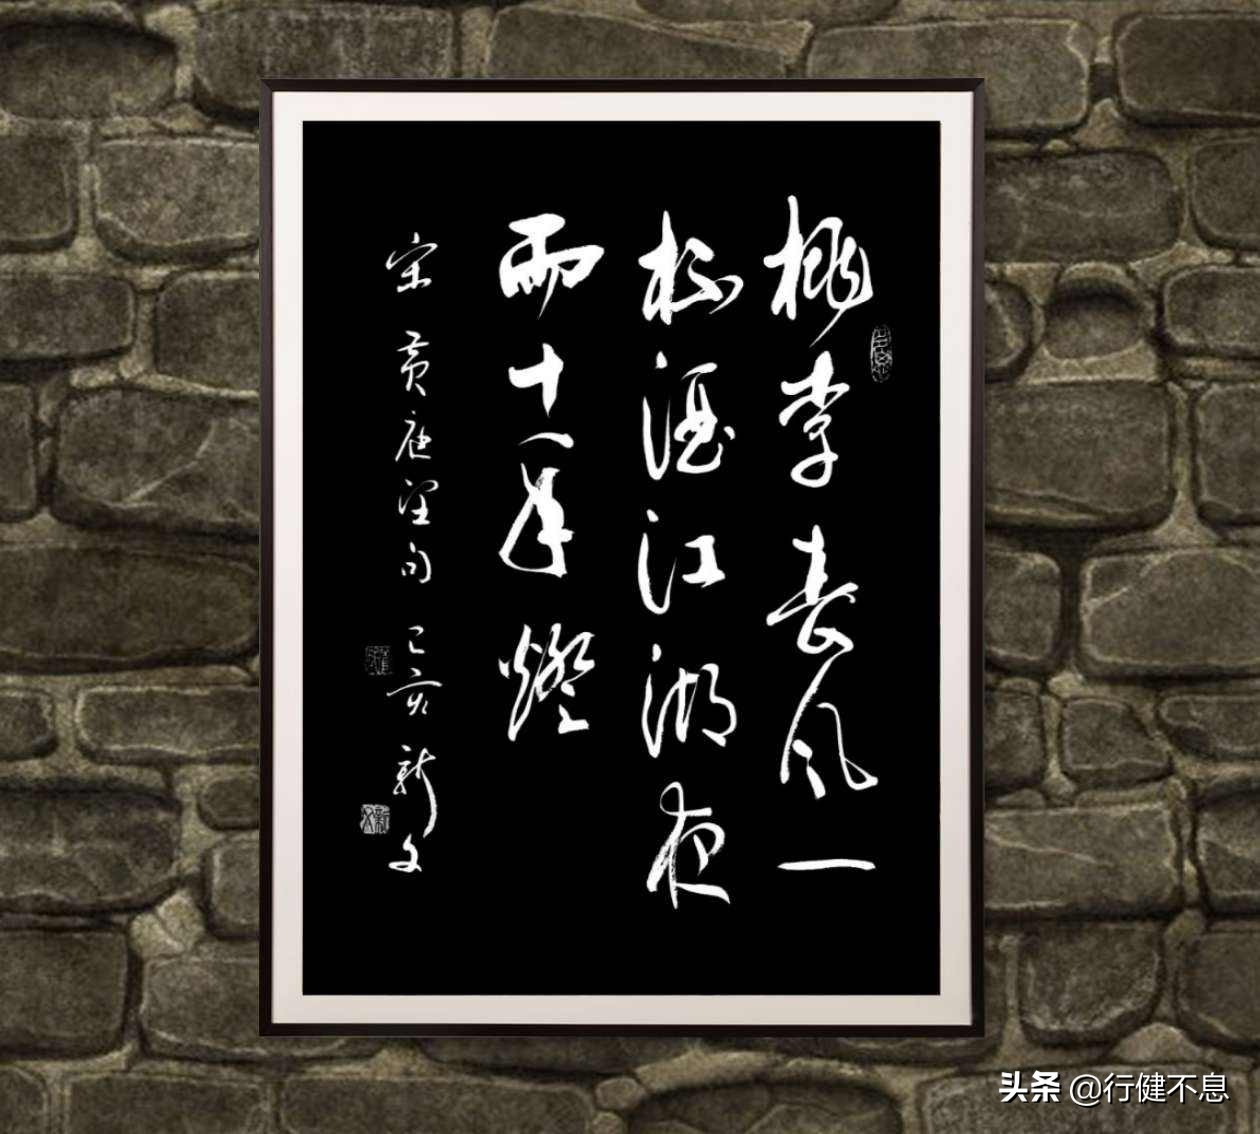 桃李春风一
杯酒江湖夜
雨十年燈
宋 黄庭坚句 己亥 新文
头条 @行健不息